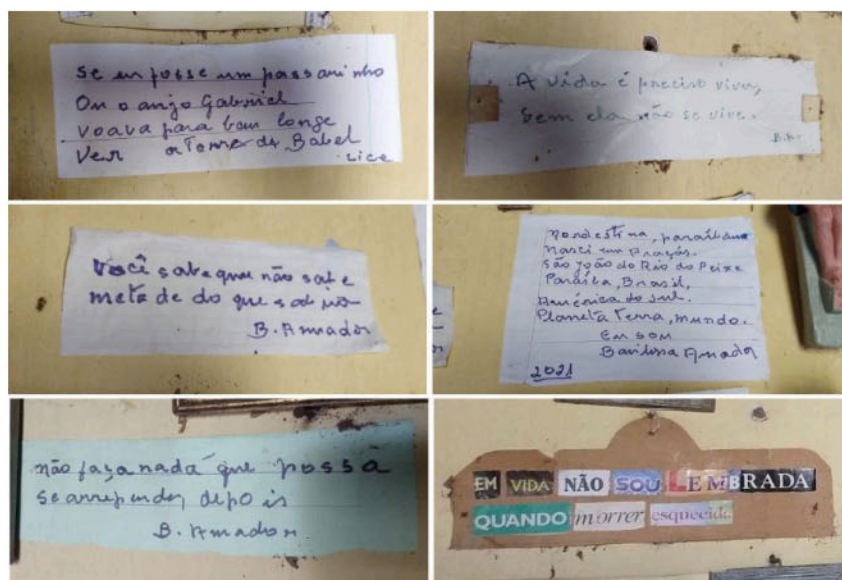 Se eu fosse um passarinho
Ou o anjo Gabriel
voava para bem longe
Ver a Torre de Babel
Lice
A vida é preciso viver,
Sem ela não se vive.
B.A.
Você sabe que não sabe
metade do que sabia
B. Amador
Nordestina, paraibana
Nasci em
São João do Rio do Peixe
Paraíba, Brasil,
América do sul.
Planeta Terra, mundo.
Eu sou
Amador
2021
não faça nada que possa
se arrepender depois
B. Amador
EM VIDA NÃO SOU LEMBRADA
QUANDO morrer esquecida